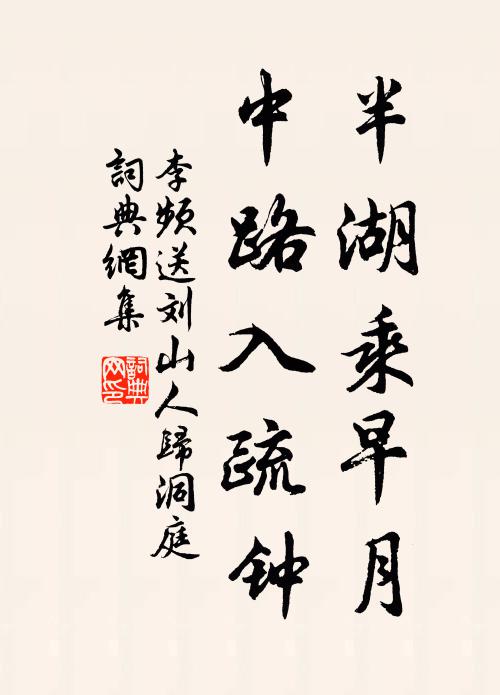 半湖乘早月
中路入疏钟
李频送刘山人歸洞庭
詞典網集
詞典
网印